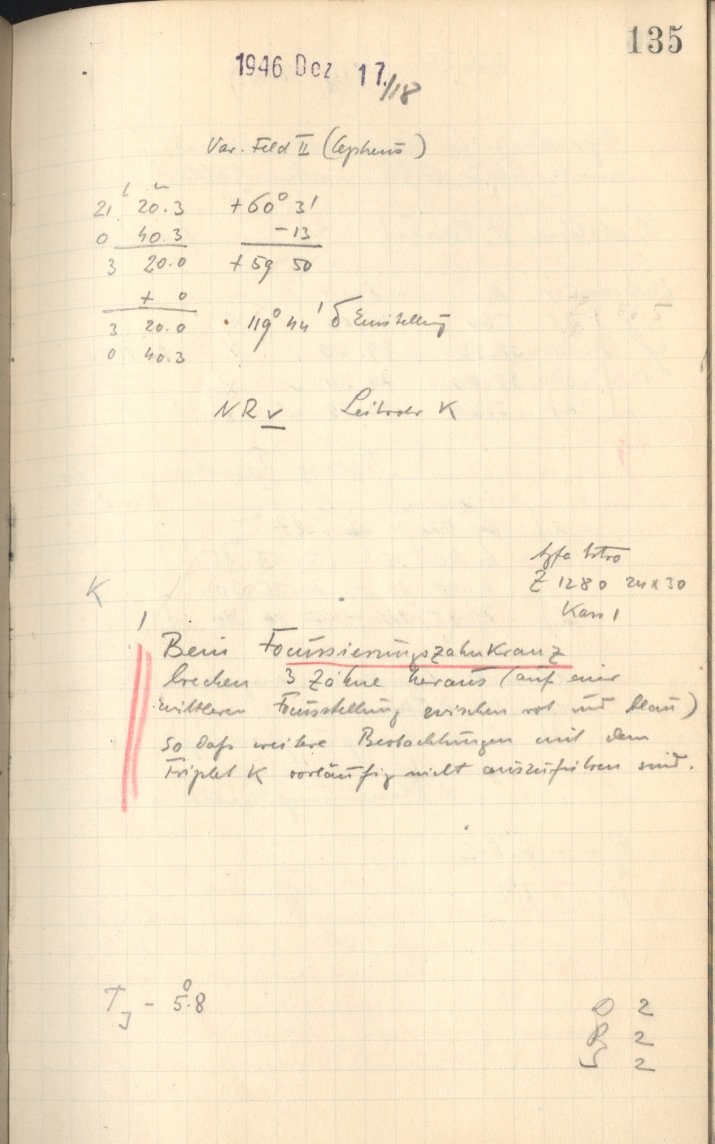 135
1946 Dez 17./18
Var. Feld II (Cepheus)
21 20.3 +60° 3'
0 40.3 -13
3 20.0 +59 50
+ 0
3 20.0 119° 44' δ Einstellung
0 40.3
NR v Leitrohr K
Agfa Astro
K Z 1280 24x30
Kass 1
1
Beim Focussierungszahnkranz
brechen 3 Zähne heraus (auf einer
mittleren Focusstellung zwischen rot und blau)
so daß weitere Beobachtungen mit dem
Triplet K vorläufig nicht auszuführen sind.
T_J - 5.°8
D 2
R 2
S 2